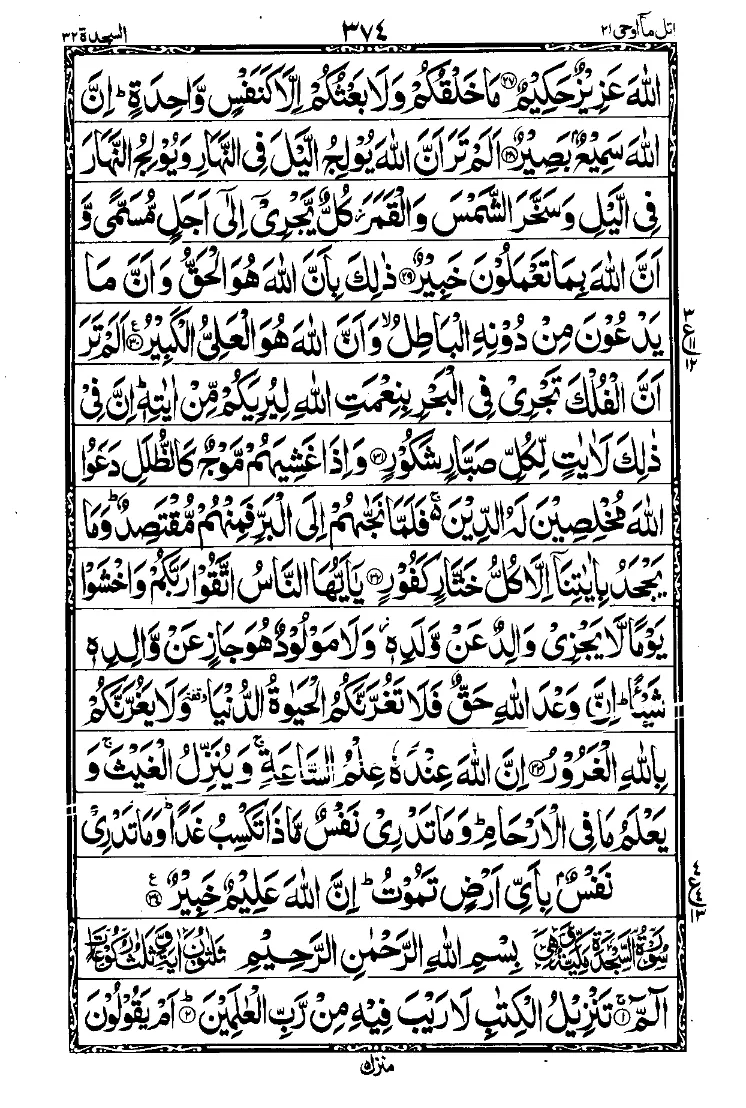 اتل مآ اوحی ۲۱ ۳۷۴ السجدة ۳۲
اللّٰهَ عَزِيْزٌ حَكِيْمٌ ۝۲۷ مَا خَلْقُكُمْ وَلَا بَعْثُكُمْ اِلَّا كَنَفْسٍ وَّاحِدَةٍ ؕ اِنَّ
اللّٰهَ سَمِيْعٌۢ بَصِيْرٌ ۝۲۸ اَلَمْ تَرَ اَنَّ اللّٰهَ يُوْلِجُ الَّيْلَ فِى النَّهَارِ وَيُوْلِجُ النَّهَارَ
فِى الَّيْلِ وَسَخَّرَ الشَّمْسَ وَالْقَمَرَ ؗ كُلٌّ يَّجْرِىْۤ اِلٰٓى اَجَلٍ مُّسَمًّى وَّ
اَنَّ اللّٰهَ بِمَا تَعْمَلُوْنَ خَبِيْرٌ ۝۲۹ ذٰلِكَ بِاَنَّ اللّٰهَ هُوَ الْحَقُّ وَاَنَّ مَا
يَدْعُوْنَ مِنْ دُوْنِهِ الْبَاطِلُ ۙ وَاَنَّ اللّٰهَ هُوَ الْعَلِىُّ الْكَبِيْرُ ۝۳۰ ع اَلَمْ تَرَ
اَنَّ الْفُلْكَ تَجْرِىْ فِى الْبَحْرِ بِنِعْمَتِ اللّٰهِ لِيُرِيَكُمْ مِّنْ اٰيٰتِهٖ ؕ اِنَّ فِىْ
ذٰلِكَ لَاٰيٰتٍ لِّكُلِّ صَبَّارٍ شَكُوْرٍ ۝۳۱ وَاِذَا غَشِيَهُمْ مَّوْجٌ كَالظُّلَلِ دَعَوُا
اللّٰهَ مُخْلِصِيْنَ لَهُ الدِّيْنَ ۚ فَلَمَّا نَجّٰىهُمْ اِلَى الْبَرِّ فَمِنْهُمْ مُّقْتَصِدٌ ؕ وَمَا
يَجْحَدُ بِاٰيٰتِنَاۤ اِلَّا كُلُّ خَتَّارٍ كَفُوْرٍ ۝۳۲ يٰۤاَيُّهَا النَّاسُ اتَّقُوْا رَبَّكُمْ وَاخْشَوْا
يَوْمًا لَّا يَجْزِىْ وَالِدٌ عَنْ وَّلَدِهٖ ؗ وَلَا مَوْلُوْدٌ هُوَ جَازٍ عَنْ وَّالِدِهٖ
شَيْـًٔا ؕ اِنَّ وَعْدَ اللّٰهِ حَقٌّ فَلَا تَغُرَّنَّكُمُ الْحَيٰوةُ الدُّنْيَا وقفة وَلَا يَغُرَّنَّكُمْ
بِاللّٰهِ الْغَرُوْرُ ۝۳۳ اِنَّ اللّٰهَ عِنْدَهٗ عِلْمُ السَّاعَةِ ۚ وَيُنَزِّلُ الْغَيْثَ ۚ وَ
يَعْلَمُ مَا فِى الْاَرْحَامِ ؕ وَمَا تَدْرِىْ نَفْسٌ مَّاذَا تَكْسِبُ غَدًا ؕ وَمَا تَدْرِىْ
نَفْسٌۢ بِاَىِّ اَرْضٍ تَمُوْتُ ؕ اِنَّ اللّٰهَ عَلِيْمٌ خَبِيْرٌ ۝۳۴ ع
سُوْرَةُ السَّجْدَةِ مَكِّيَّةٌ وَّهِىَ بِسْمِ اللّٰهِ الرَّحْمٰنِ الرَّحِيْمِ ثَلٰثُوْنَ اٰيَةً وَّثَلٰثُ رُكُوْعَاتٍ
الٓمّٓ ۝۱ ۚ تَنْزِيْلُ الْكِتٰبِ لَا رَيْبَ فِيْهِ مِنْ رَّبِّ الْعٰلَمِيْنَ ۝۲ ؕ اَمْ يَقُوْلُوْنَ
منزل ۵